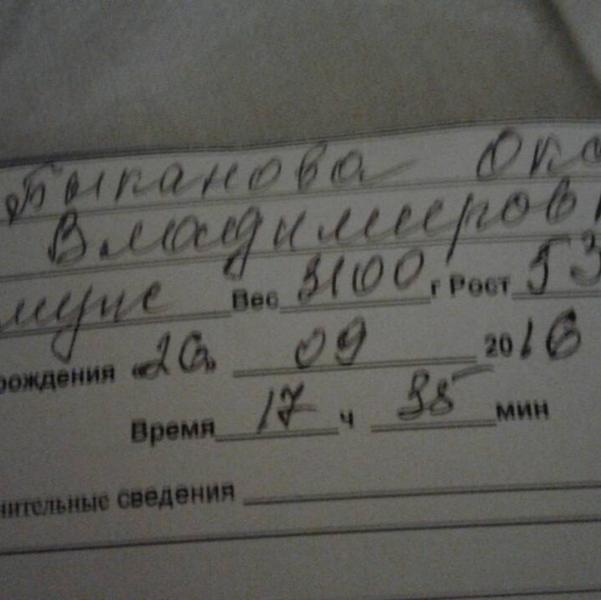 Тыканова Окс
Владимиров
муж Вес 3100 г Рост 53
рождения «26» 09 2016
Время 17 ч 35 мин
нительные сведения